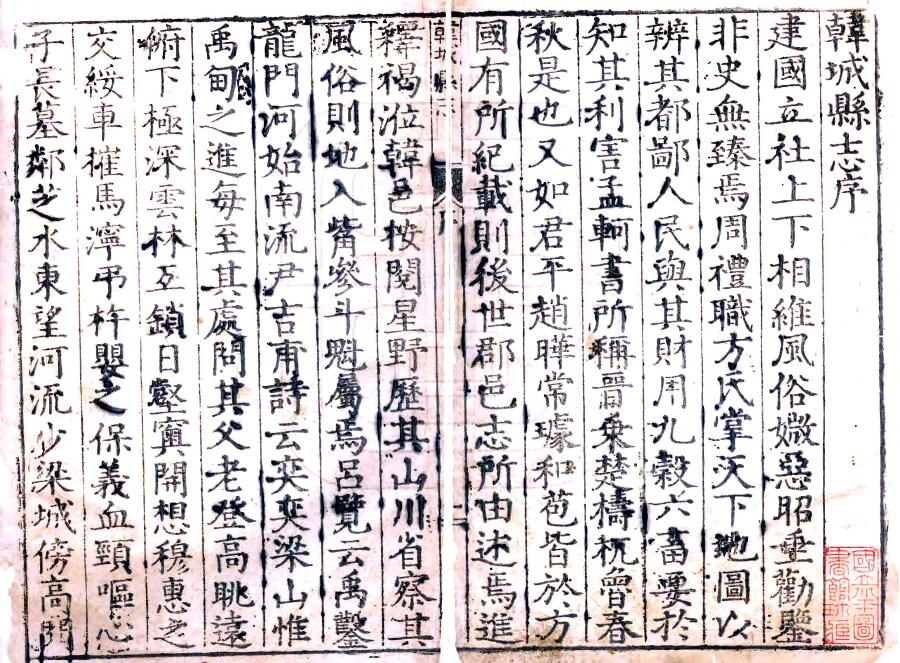 韓城縣志序
建國立社上下相維風俗媺惡昭垂勸鑒
非史無臻焉周禮職方氏掌天下地圖以
辨其都鄙人民與其財用九穀六畜要於
知其利害孟軻書所稱晉乗楚檮杌魯春
秋是也又如君平趙曄常璩和苞皆於方
國有所紀載則後世郡邑志所由述焉進
韓城縣志
序
一
釋褐涖韓邑按閱星野歷其山川省察其
風俗則地入觜參斗魁屬焉呂覽云禹鑿
龍門河始南流尹吉甫詩云奕奕梁山惟
禹甸之進每至其處問其父老登高眺遠
俯下極深雲林互鎖日壑窅開想穆惠之
交綏車摧馬濘弔杵嬰之保義血頸嘔心
子長墓鄰芝水東望河流少梁城傍高門
國立圖
書館